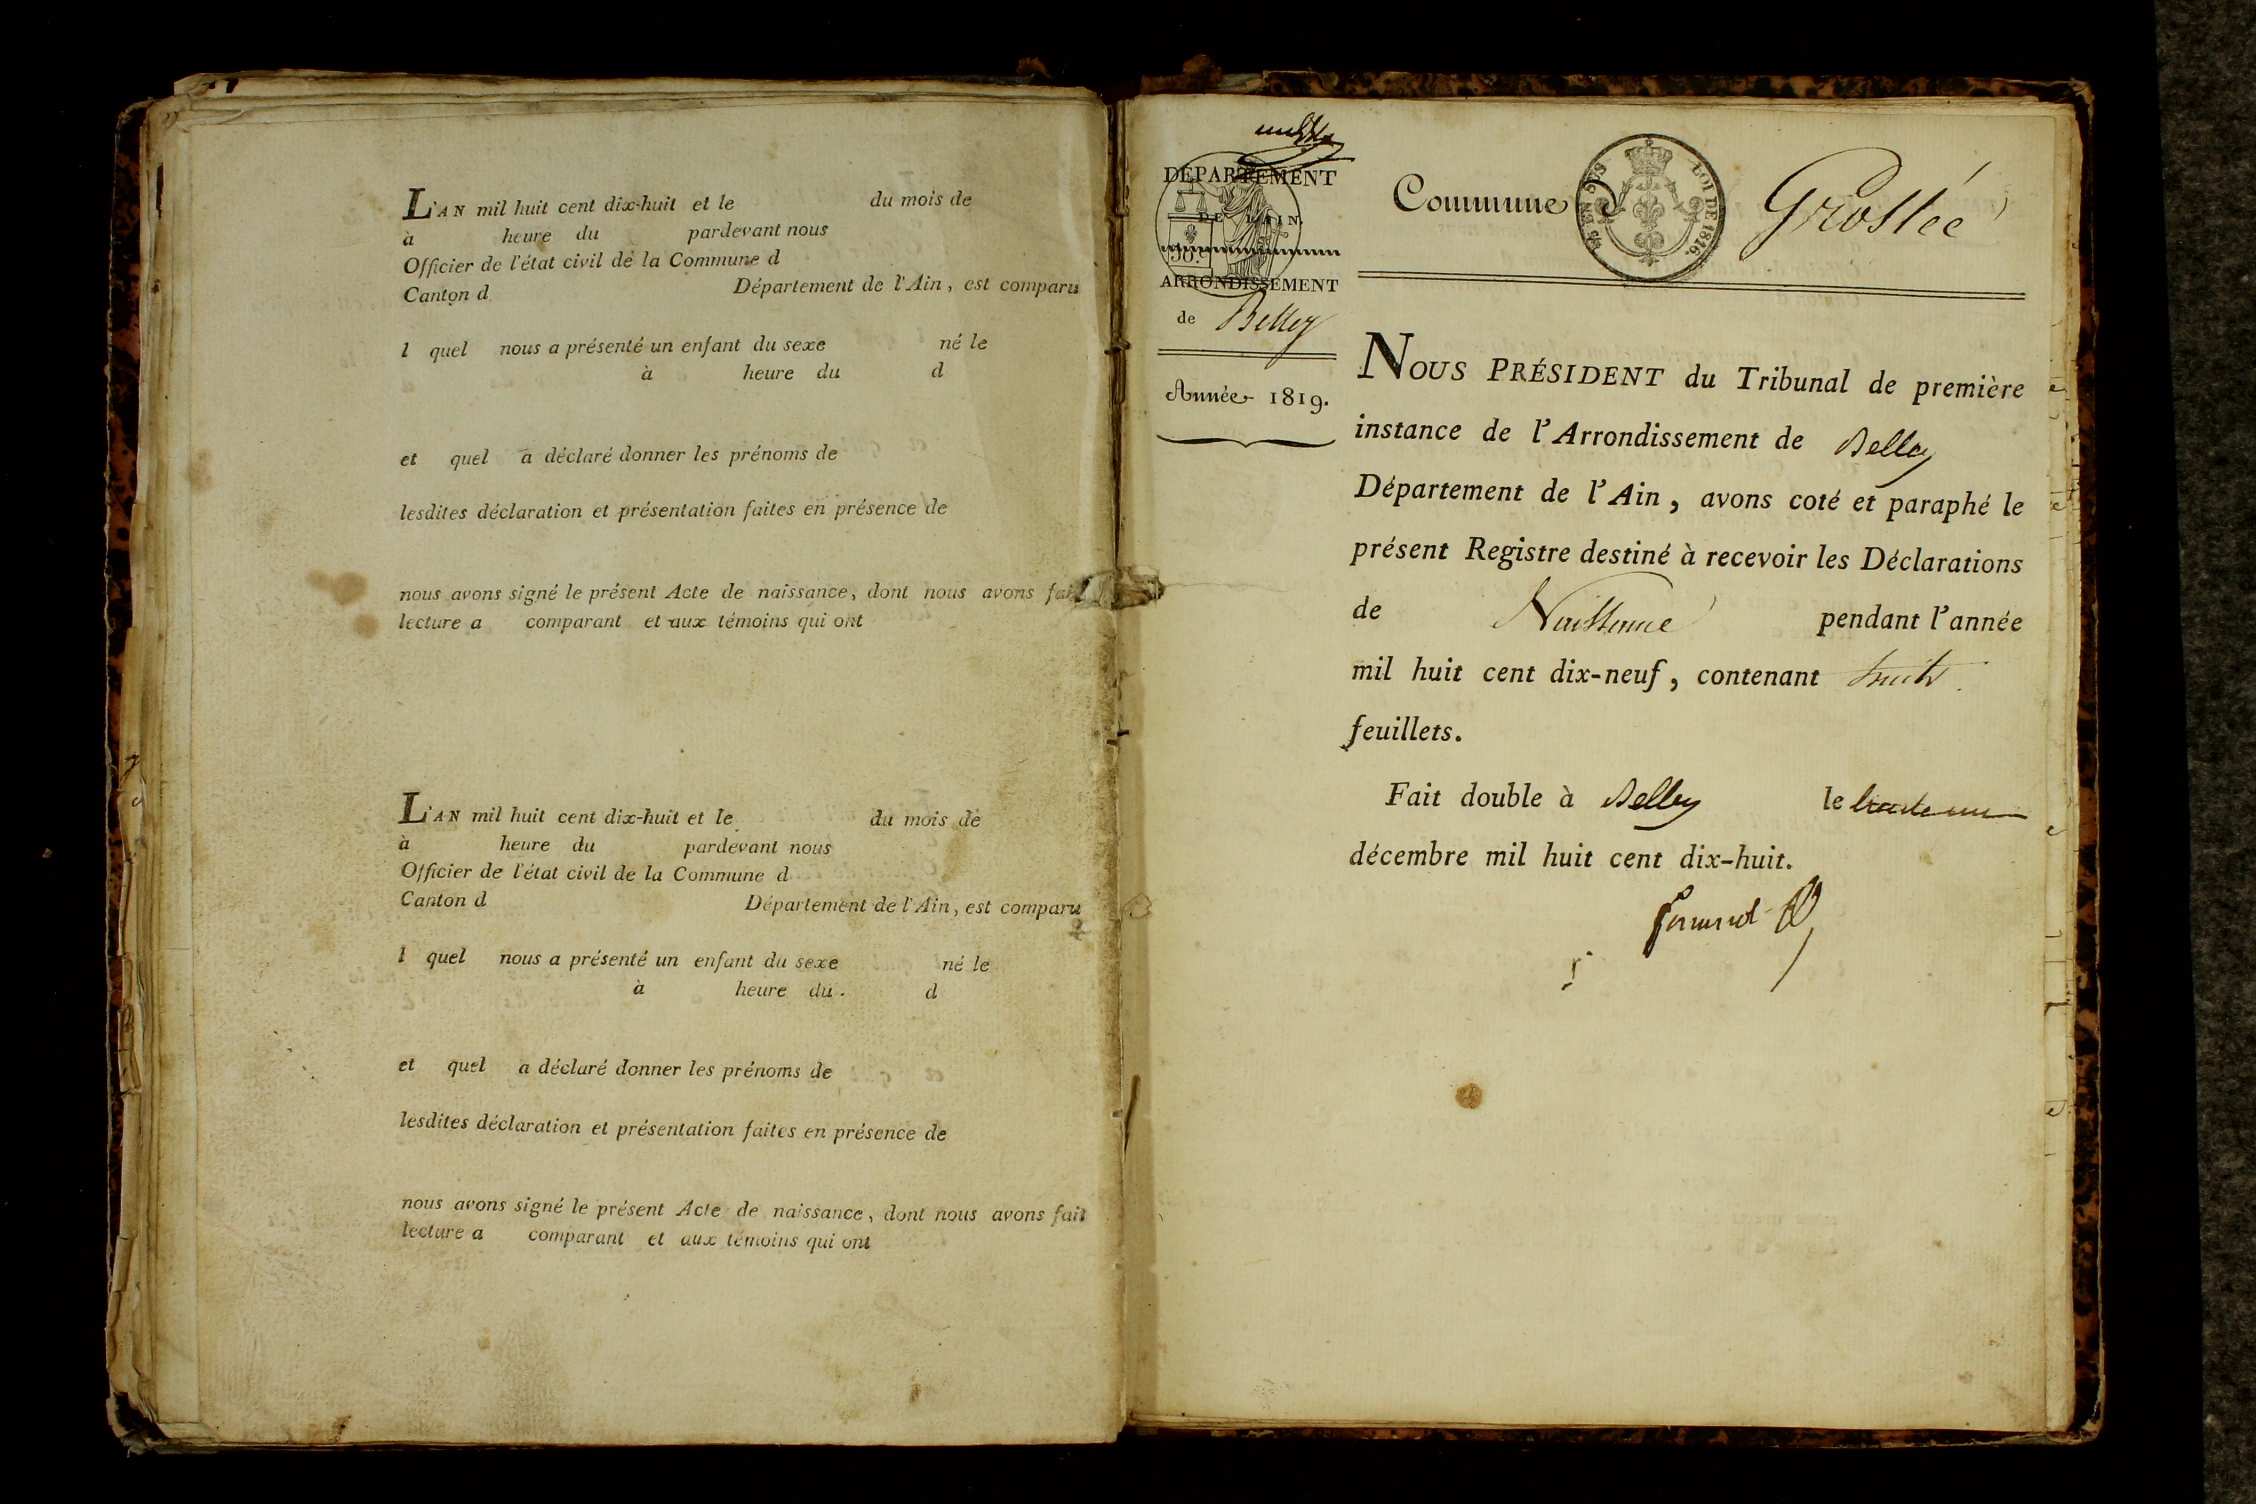 L'AN mil huit cent dix-huit et le du mois de
à heure du pardevant nous
Officier de l'état civil de la Commune d
Canton d Département de l'Ain, est comparu
l quel nous a présenté un enfant du sexe né le
à heure du d
et quel a déclaré donner les prénoms de
lesdites déclaration et présentation faites en présence de
nous avons signé le présent Acte de naissance, dont nous avons fait
lecture a comparant et aux témoins qui ont
L'AN mil huit cent dix-huit et le du mois de
à heure du pardevant nous
Officier de l'état civil de la Commune d
Canton d Département de l'Ain, est comparu
l quel nous a présenté un enfant du sexe né le
à heure du. d
et quel a déclaré donner les prénoms de
lesdites déclaration et présentation faites en présence de
nous avons signé le présent Acte de naissance, dont nous avons fait
lecture a comparant et aux témoins qui ont
DÉPARTEMENT
DE L'AIN.
ARRONDISSEMENT
de Belley
Année 1819.
Commune d Groslée
EN SUS
LOI DE 1816.
NOUS PRÉSIDENT du Tribunal de première
instance de l'Arrondissement de Belley
Département de l'Ain, avons coté et paraphé le
présent Registre destiné à recevoir les Déclarations
de Naissance pendant l'année
mil huit cent dix-neuf, contenant huit
feuillets.
Fait double à Belley le trente un
décembre mil huit cent dix-huit.